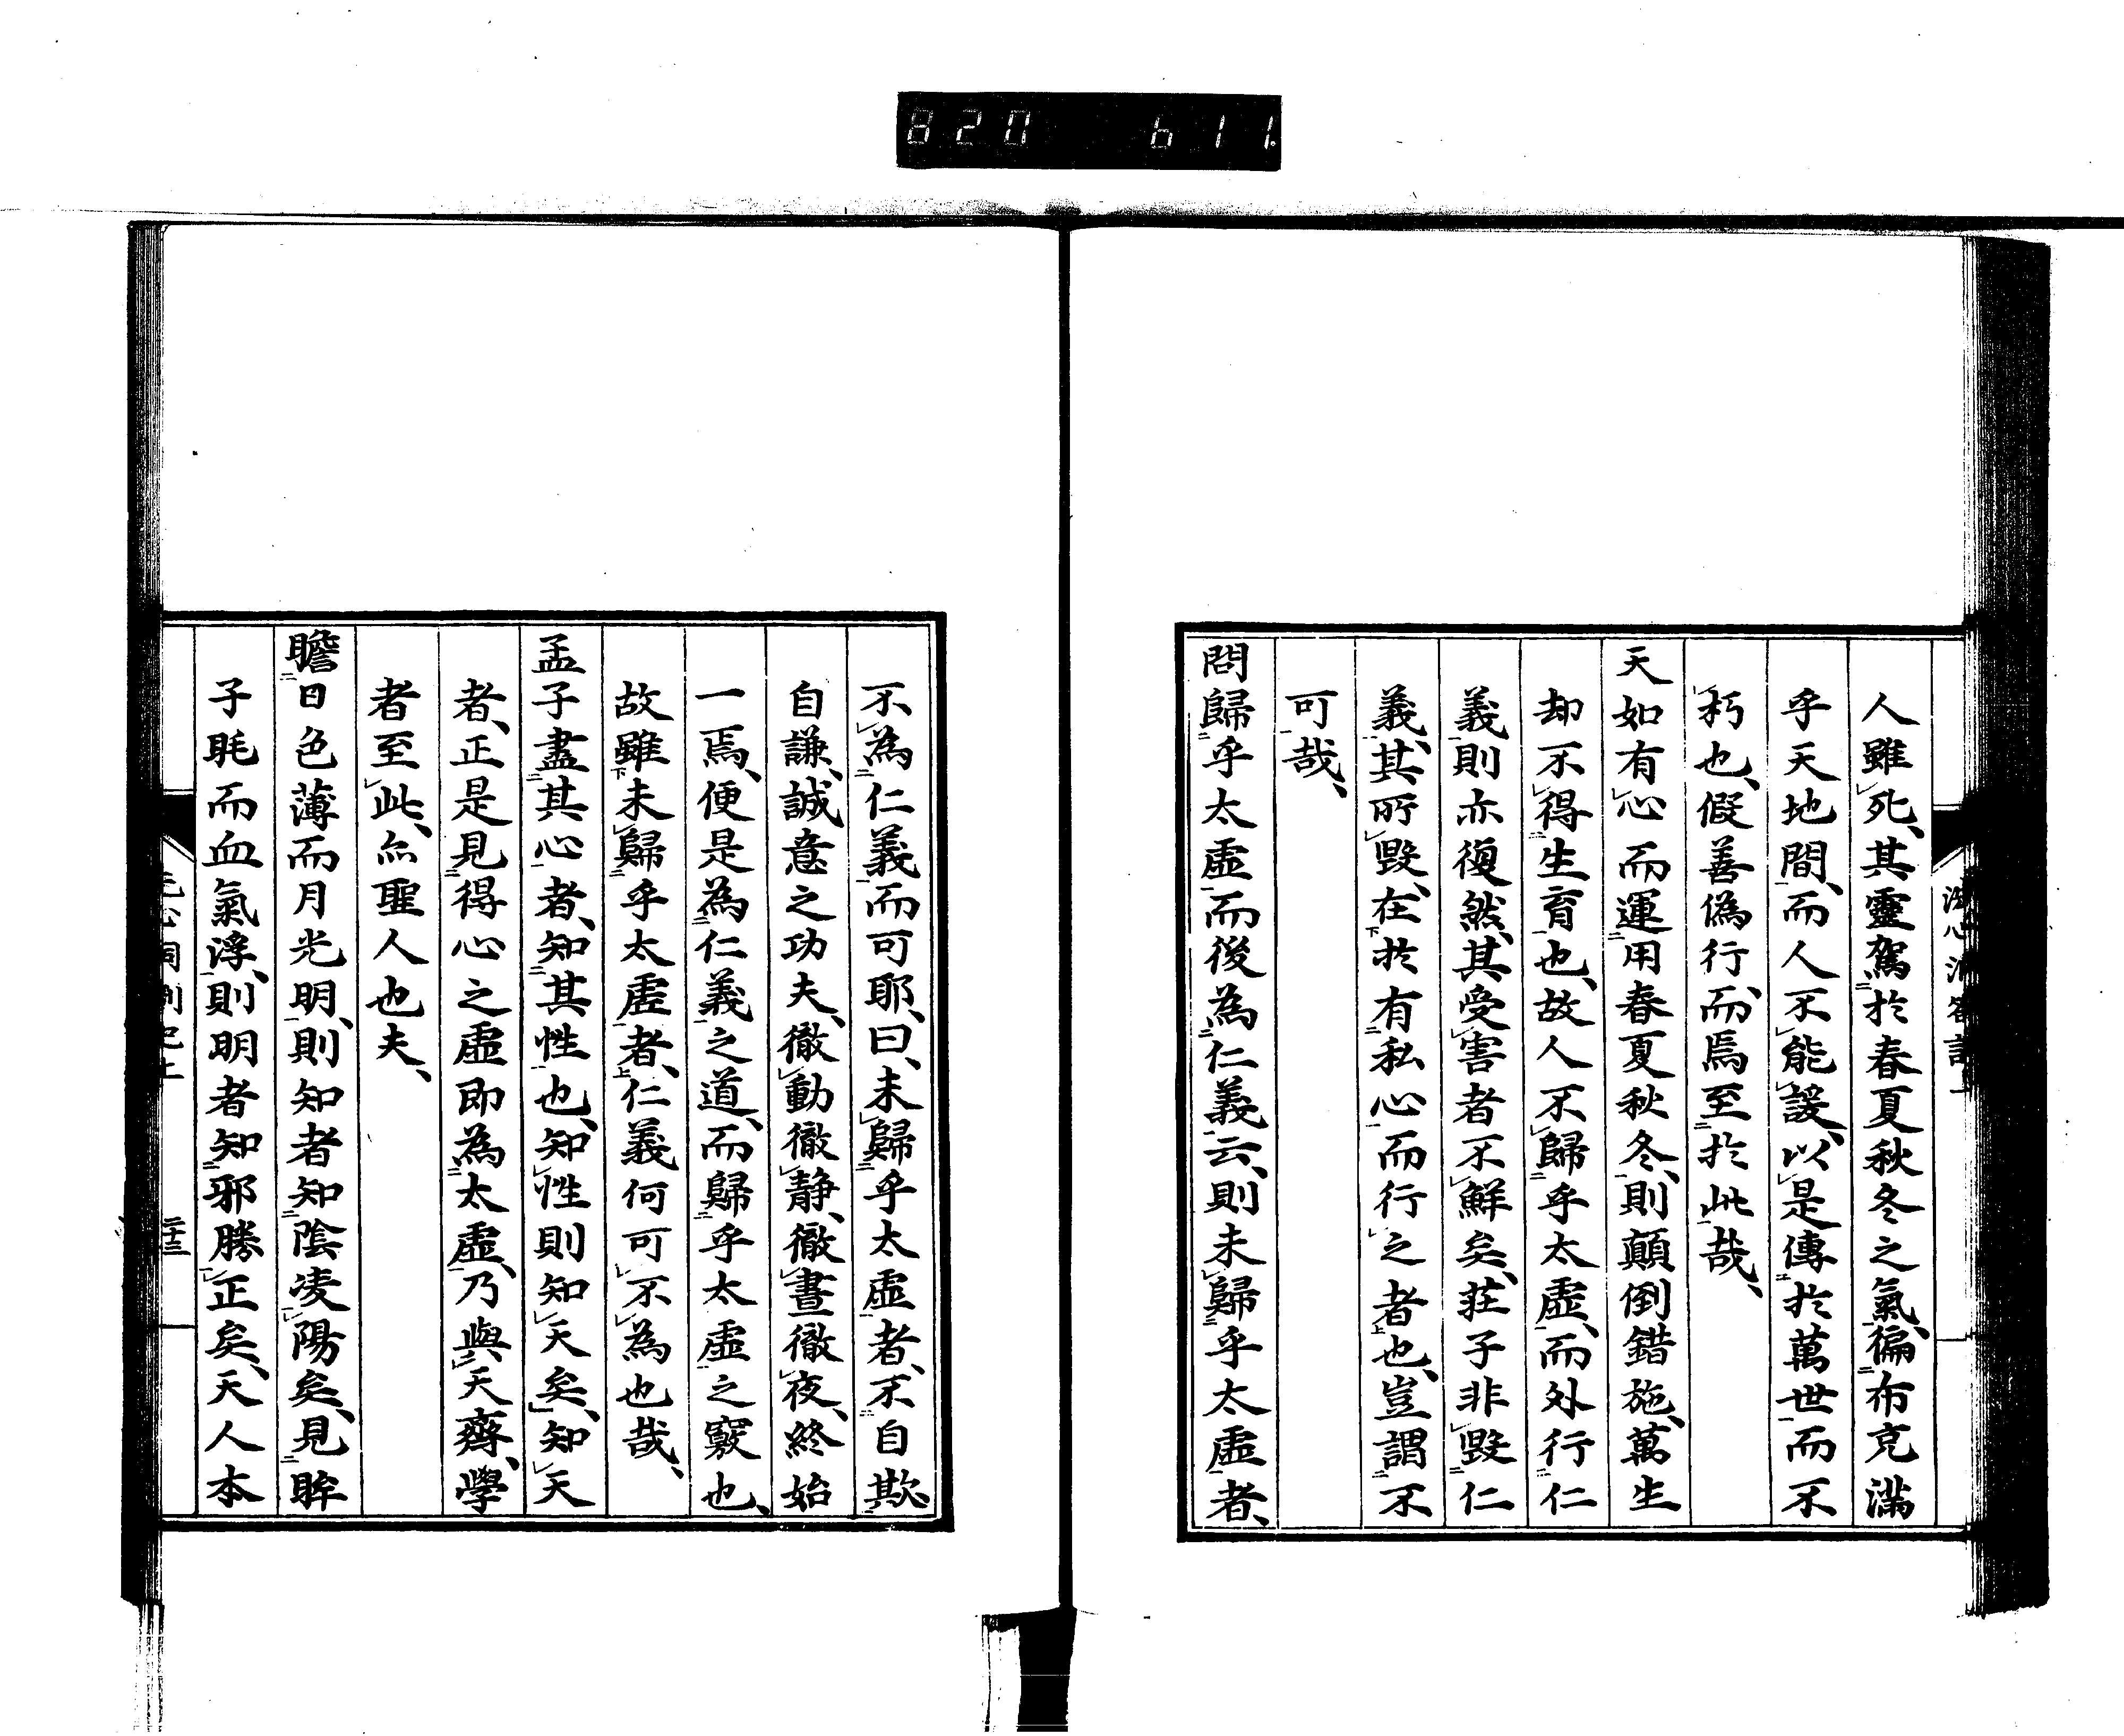 820 611
人雖死、其靈駕於春夏秋冬之氣、徧布充滿
乎天地間、而人不能諼、以是傳於萬世而不
朽也、假善偽行、而焉至於此哉、
天如有心而運用春夏秋冬、則顛倒錯施、萬生
却不得生育也、故人不歸乎太虛、而外行仁
義、則亦復然、其受害者不鮮矣、莊子非毀仁
義、其所毀、在於有私心而行之者也、豈謂不
可哉、
問歸乎太虛而後為仁義云、則未歸乎太虛者、
不為仁義而可耶、曰、未歸乎太虛者、不自欺
自謙、誠意之功夫、徹動徹静、徹晝徹夜、終始
一焉、便是為仁義之道、而歸乎太虛之竅也、
故雖未歸乎太虛者、仁義何可不為也哉、
孟子盡其心者、知其性也、知性則知天矣、知天
者、正是見得心之虛即為太虛、乃與天齊、學
者至此、亦聖人也夫、
瞻日色薄而月光明、則知者知陰凌陽矣、見眸
子眊而血氣浮、則明者知邪勝正矣、天人本
二十三